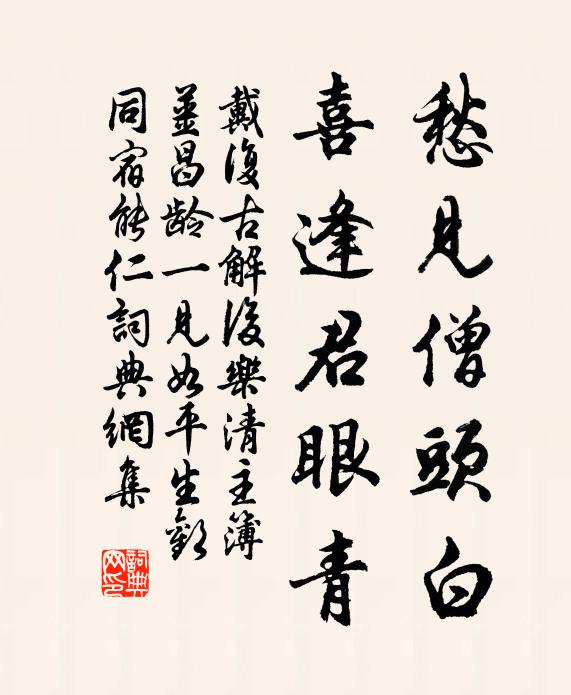 愁見僧頭白
喜逢君眼青
戴復古解後樂清主簿
姜昌龄一見如平生歡
同宿能仁詞典網集
詞典网印